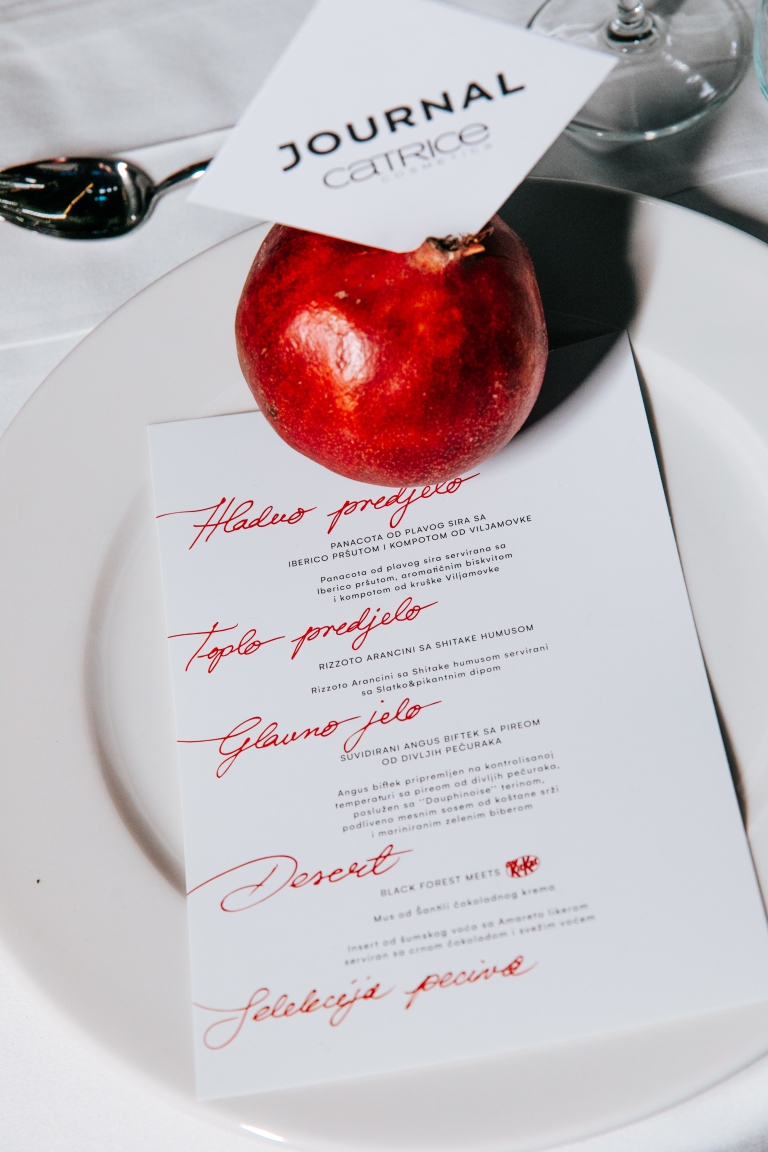 JOURNAL
CATRICE
COSMETICS
Hladno predjelo
PANACOTA OD PLAVOG SIRA SA
IBERICO PRŠUTOM I KOMPOTOM OD VILJAMOVKE
Panacota od plavog sira servirana sa
Iberico pršutom, aromatičnim biskvitom
i kompotom od kruške Viljamovke
Toplo predjelo
RIZZOTO ARANCINI SA SHITAKE HUMUSOM
Rizzoto Arancini sa Shitake humusom servirani
sa Slatko&pikantnim dipom
Glavno jelo
SUVIDIRANI ANGUS BIFTEK SA PIREOM
OD DIVLJIH PEČURAKA
Angus biftek pripremljen na kontrolisanoj
temperaturi sa pireom od divljih pečuraka,
poslužen sa "Dauphinoise" terinom,
podliveno mesnim sosem od koštane srži
i mariniranim zelenim biberom
Desert
BLACK FOREST MEETS KitKat
Mus od Šantili čokoladnog krema
Insert od šumskog voća sa Amareto likerom
serviran sa crnom čokoladom i svežim voćem
Selekcija peciva